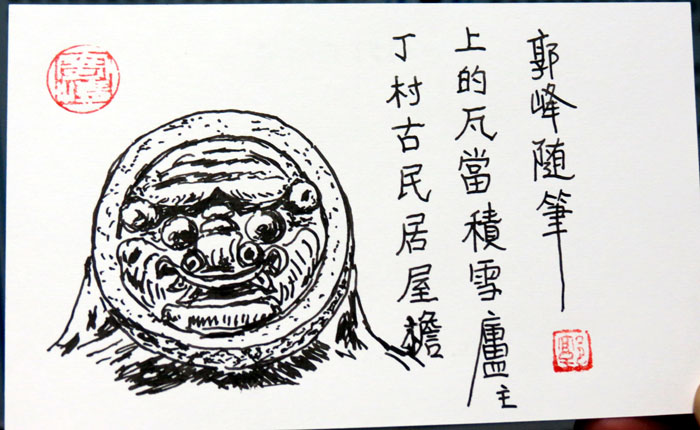 丁村古民居屋檐
上的瓦當積雪廬主
郭峰随筆